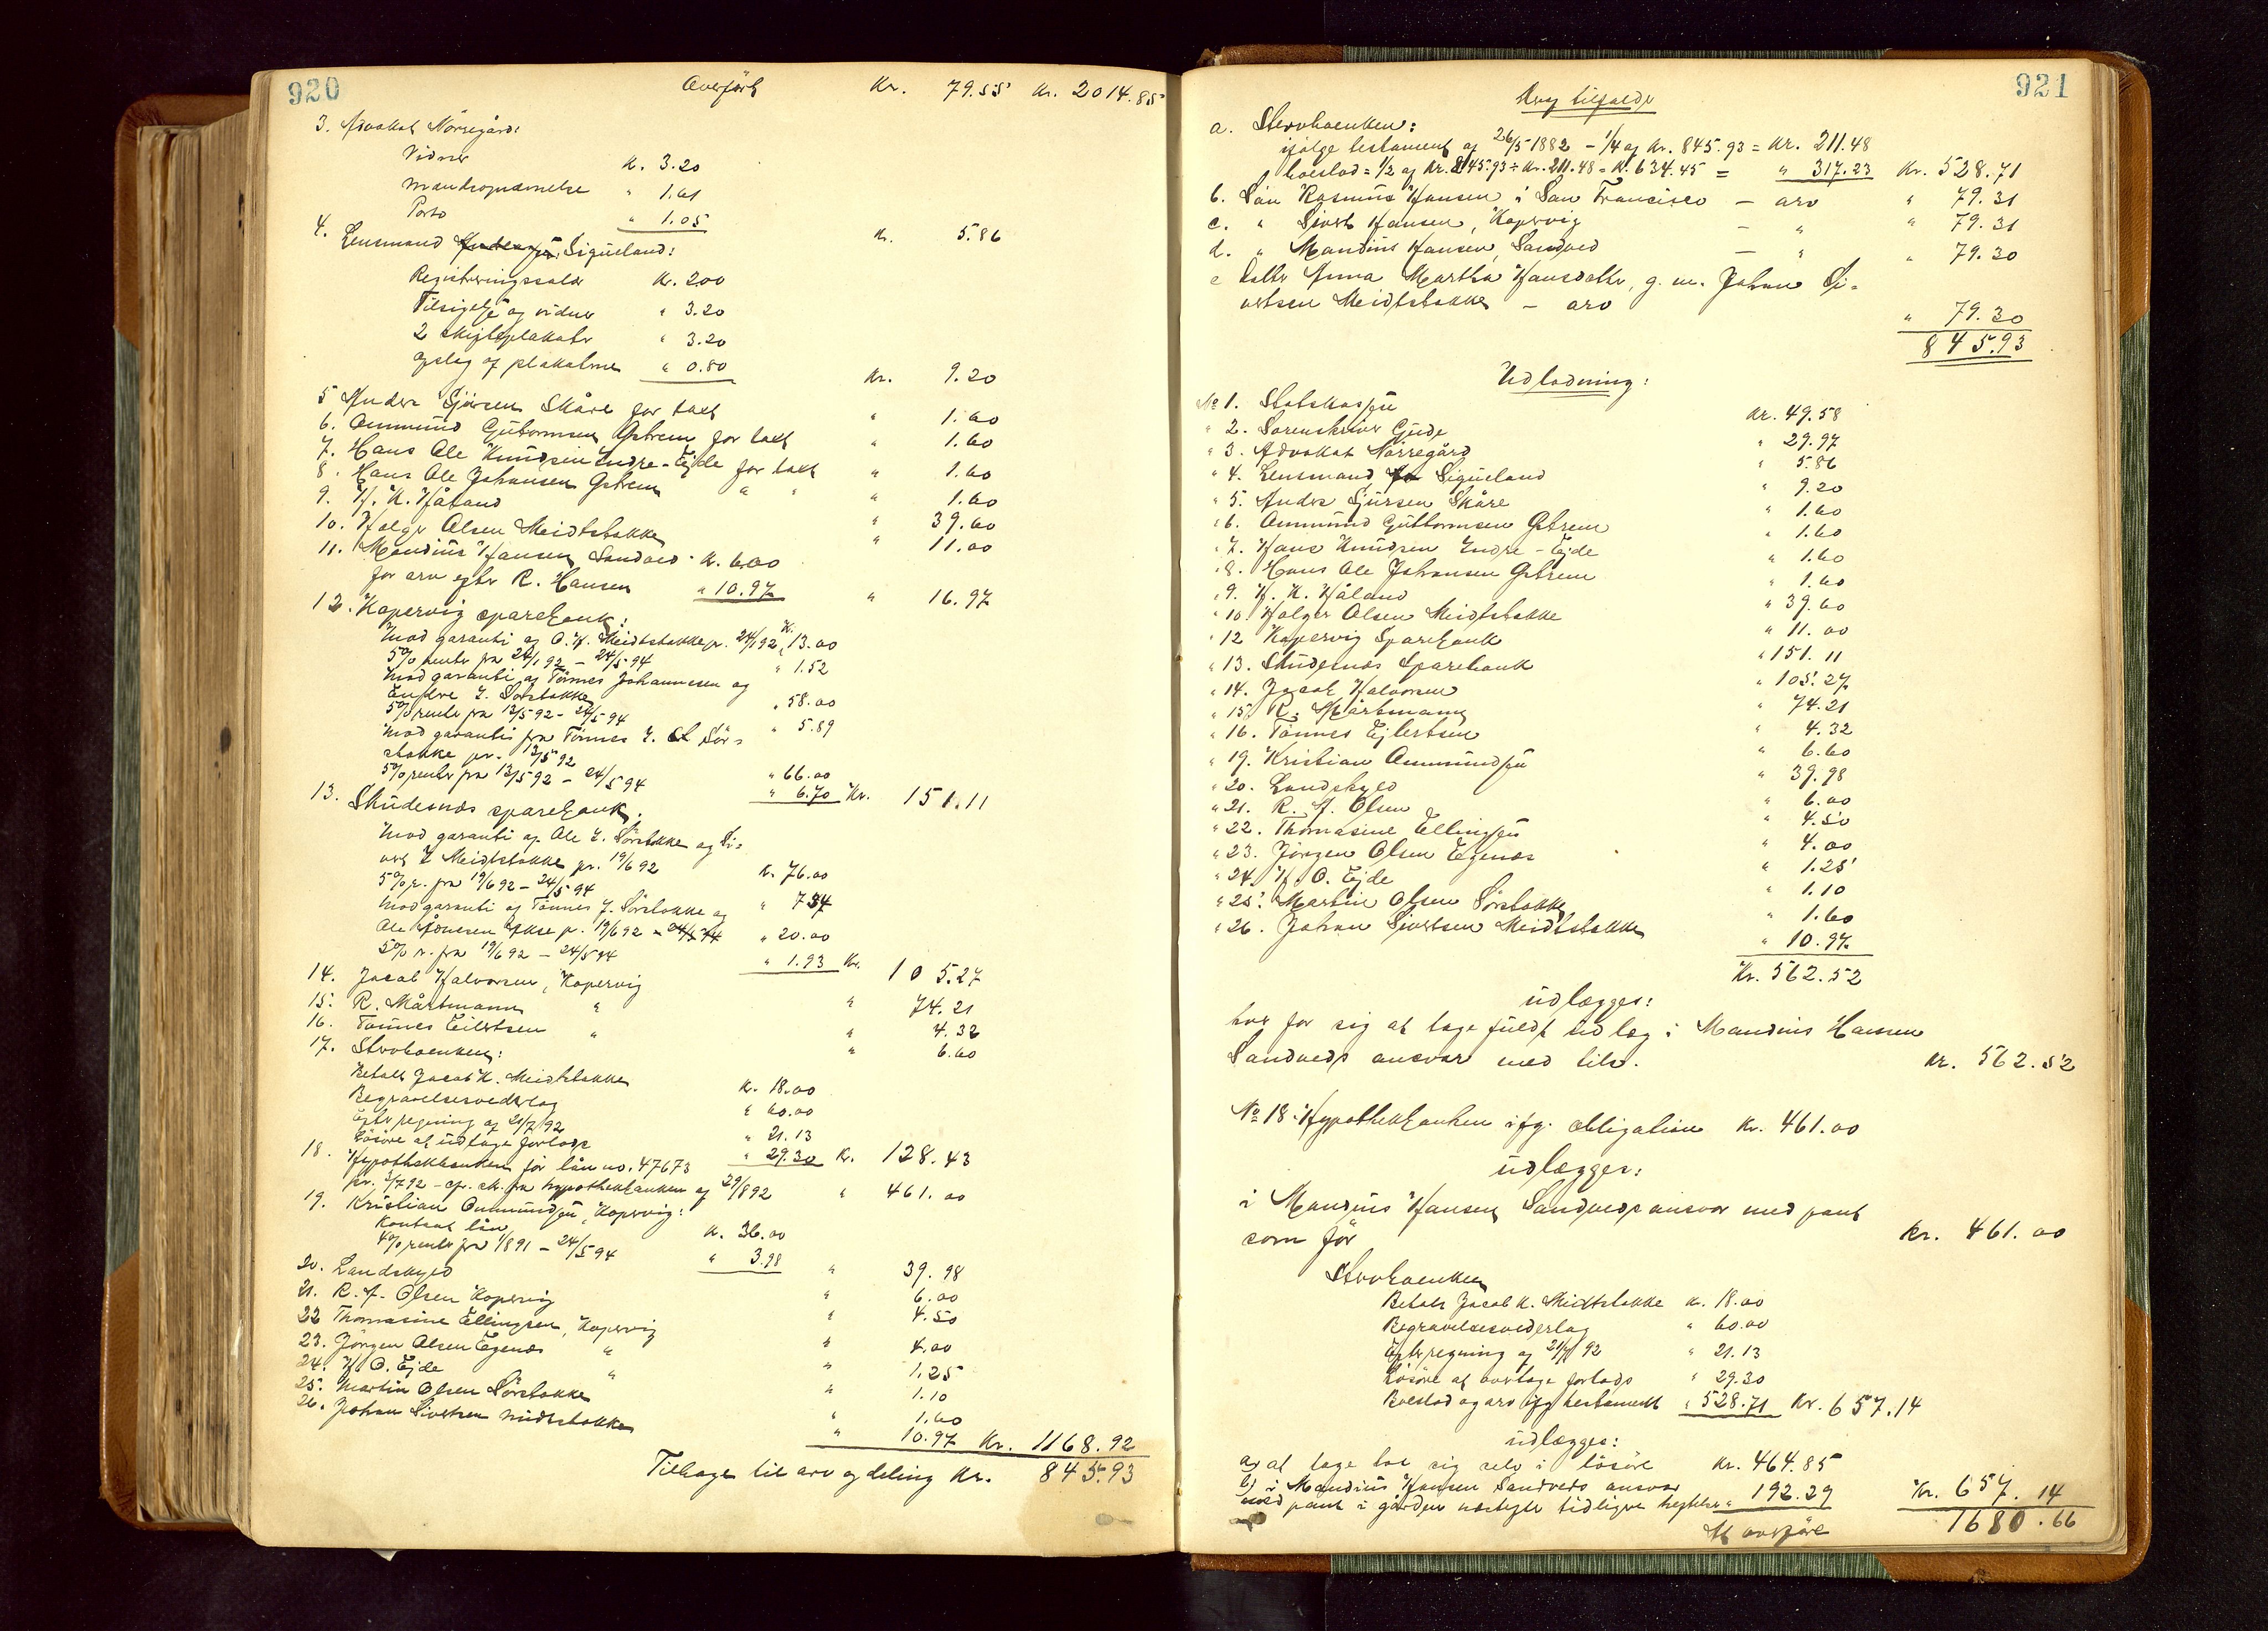 920
Overført Kr. 79.55 Kr. 2014.85
3. Advokat Nörregård:
Vidner Kr. 3.20
Mandsopnævnelse " 1.61
Porto " 1.05 Kr. 5.86
4. Lensmand Sigueland:
Registreringssalær Kr. 2.00
Tilsigelse og vidner " 3.20
2 skifteplakater " 3.20
Opslag af plakaterne " 0.80 Kr. 9.20
5 Anders Sjursen Skåre for takt " 1.60
6. Ommund Gutormsen Østrem for takt " 1.60
7. Hans Ole Knudsen Indre-Ejde for takt " 1.60
8. Hans Ole Johansen Østrem " " " 1.60
9. H. K. Håland " 39.60
10. Holger Olsen Meidtstokke " 11.00
11. Mandius Hansen Sandved Kr. 6.00
for arv efter R. Hansen " 10.97 " 16.97
12. Kopervig sparebank:
Mod garanti af O. H. Meidtstokke pr. 24/1 92 Kr. 13.00
5% renter fra 24/1 92 - 24/5 94 " 1.52
Mod garanti af Tönnes Johannesen og
Endre I. Sörstokke " 58.00
5% rente fra 13/5 92 - 24/5 94 " 5.89
Mod garanti fra Tönnes I. Sör=
stokke pr. 13/5 92 " 66.00
5% renter fra 13/5 92 - 24/5 94 " 6.70 Kr. 151.11
13. Skudesnæs sparebank:
Mod garanti af Ole I. Sörstokke og Si=
vert I Meidtstokke pr. 19/6 92 Kr. 76.00
5% r. fra 19/6 92 - 24/5 94 " 7.34
Mod garanti af Tönnes J. Sörstokke og
Ole pr. 19/6 92 - 24/5 94 " 20.00
5% r. fra 19/6 92 - 24/5 94 " 1.93 Kr. 105.27
14. Jacob Halvorsen, Kopervig " 74.21
15. R. Mårtmann " " 4.32
16. Tönnes Eilertsen " " 6.60
17. Stervboenken:
Betalt Jacob K. Meidtstokke Kr. 18.00
Begravelsesvederlag " 60.00
Efter regning af 21/7 92 " 21.13
Lösöre at udtage forlods " 29.30 Kr. 128.43
18. Hypothekbanken for lån no. 47673
pr. 1/7 92 - cfr. sk. fra hypothekbanken af 29/8 92 " 461.00
19. Kristian Ommundsen, Kopervig:
Kontant lån Kr. 36.00
4% renter fra 1/8 91 - 24/5 94 " 3.98 " 39.98
20. Landskyld " 6.00
21. R. J. Olsen Kopervig " 4.50
22 Thomasine Ellingsen, Kopervig " 4.00
23. Jörgen Olsen Egenæs " " 1.25
24. H. O. Ejde " " 1.10
25. Martin Olsen Sörstokke " 1.60
26. Johan Sivertsen Midtstokke " 10.97 Kr. 1168.92
Tilbage til arv og deling Kr. 845.93
921
Dog tilfalder
a. Stervboenken:
ifølge testament af 26/5 1882 - 1/4 af Kr. 845.93 = Kr. 211.48
boeslod = 1/2 af Kr. 845.93 ÷ Kr. 211.48 = Kr. 634.45 = " 317.23 Kr. 528.71
b. Sön Rasmus Hansen i San Francisco - arv " 79.31
c. " Sjvert Hansen, Kopervig - " " 79.31
d. " Mandius Hansen, Sandved - " " 79.30
e Datter Anna Martha Hansdatter, g. m. Johan Si=
vertsen Meidtstokke - arv " 79.30
845.93
Udlodning:
No 1. Statskassen Kr. 49.58
" 2. Sorenskriver Gjude " 29.97
" 3. Advokat Nörregård " 5.86
" 4. Lensmand Sigueland " 9.20
" 5. Anders Sjursen Skåre " 1.60
" 6. Ommund Guttormsen Østrem " 1.60
" 7. Hans Knudsen Indre-Ejde " 1.60
" 8. Hans Ole Johansen Østrem " 1.60
" 9. H. K. Håland " 39.60
" 10 Holger Olsen Meidtstokke " 11.00
" 12 Kopervig Sparebank " 151.11
" 13. Skudesnæs Sparebank " 105.27
" 14. Jacob Halvorsen " 74.21
" 15. R. Mårtmann " 4.32
" 16. Tönnes Ejlertsen " 6.60
" 19. Kristian Ommundsen " 39.98
" 20. Landskyld " 6.00
" 21. R. J. Olsen " 4.50
" 22. Thomasine Ellingsen " 4.00
" 23. Jörgen Olsen Egenæs " 1.25
" 24. H. O. Ejde " 1.10
" 25. Martin Olsen Sörstokke " 1.60
" 26. Johan Sjvertsen Meidtstokke " 10.97
Kr. 562.52
udlægges:
hver for sig at tage fuldt udlæg i Mandius Hansen
Sandveds ansvar med tilv. Kr. 562.52
No 18. Hypothekbanken ifg. obligation Kr. 461.00
udlægges:
i Mandius Hansen Sandveds ansvar med pant
som för Kr. 461.00
Stervboenken
Betalt Jacob K. Midtstokke Kr. 18.00
Begravelsesvederlag " 60.00
Efter regning af 21/7 92 " 21.13
Lösöre at overtage forlods " 29.30
Boeslod og arv ifg. testament " 528.71 Kr. 657.14
udlægges:
a) at tage hos sig selv i lösöre Kr. 464.85
b) i Mandius Hansen Sandveds ansvar
med pant i gården næstefter tidligere heftelser " 192.29 Kr. 657.14
At overføre 1680.66